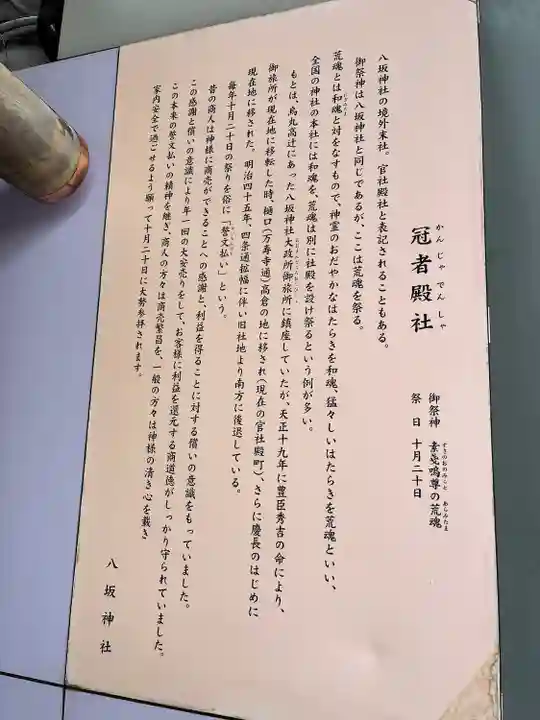 かんじゃでんしゃ
冠者殿社
御祭神 素戔嗚尊の荒魂
すさのおのみこと あらみたま
祭 日 十月二十日
八坂神社の境外末社。官社殿社と表記されることもある。
御祭神は八坂神社と同じであるが、ここは荒魂を祭る。
荒魂とは和魂と対をなすもので、神霊のおだやかなはたらきを和魂、猛々しいはたらきを荒魂といい、
にぎみたま
全国の神社の本社には和魂を、荒魂は別に社殿を設け祭るという例が多い。
もとは、烏丸高辻にあった八坂神社大政所御旅所に鎮座していたが、天正十九年に豊臣秀吉の命により、
御旅所が現在地に移転した時、樋口(万寿寺通)高倉の地に移され(現在の官社殿町)、さらに慶長のはじめに
現在地に移された。明治四十五年、四条通拡幅に伴い旧社地より南方に後退している。
毎年十月二十日の祭りを俗に「誓文払い」という。
昔の商人は神様に商売ができることへの感謝と、利益を得ることに対する償いの意識をもっていました。
この感謝と償いの意識により年一回の大安売りをして、お客様に利益を還元する商道徳がしっかり守られていました。
この本来の誓文払いの精神を継ぎ、商人の方々は商売繁昌を、一般の方々は神様の清き心を戴き
家内安全で過ごせるよう願って十月二十日に大勢参拝されます。
八坂神社